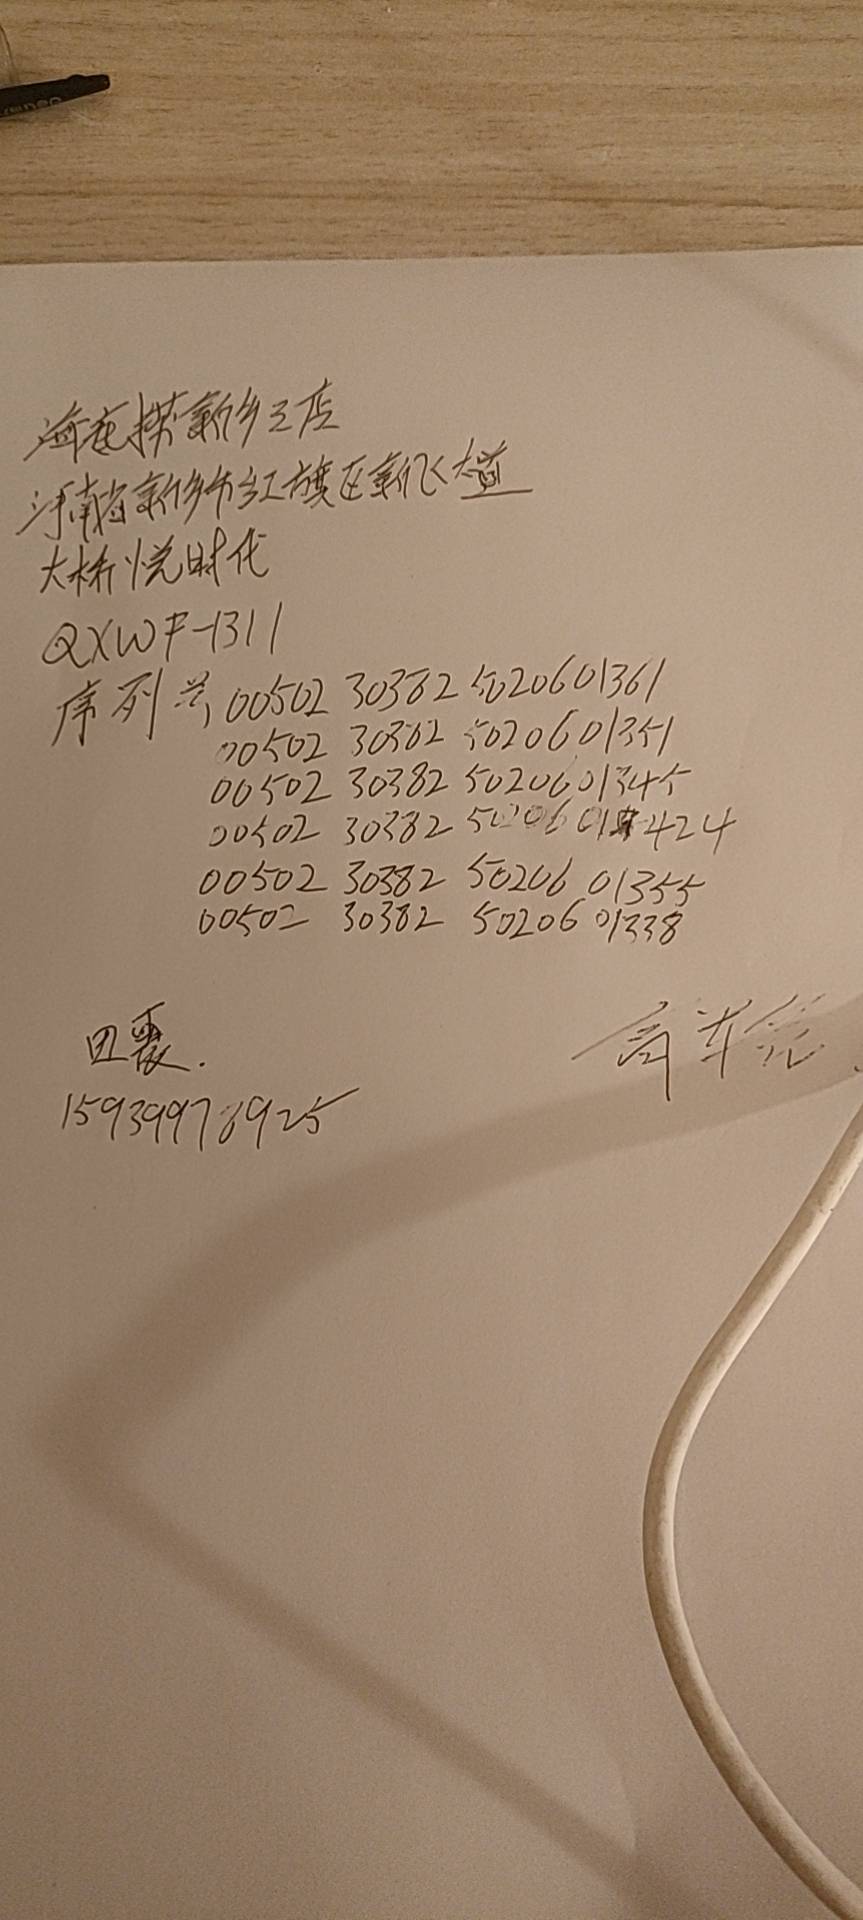 海底捞新乡三店
河南省新乡市红旗区新飞大道
大桥悦时代
QXWF-1311
序列号,00502 30382 5020601361
00502 30382 5020601351
00502 30382 5020601345
00502 30382 502060 1424
00502 30382 50206 01355
00502 30382 50206 01338
田震.
15939978925